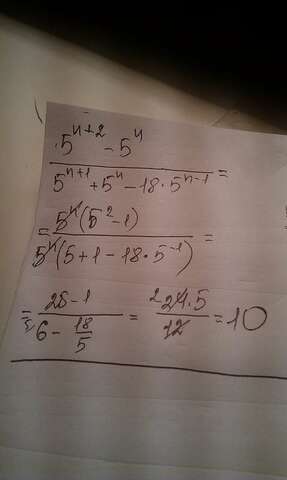 (5^{n+2} - 5^n) / (5^{n+1} + 5^n - 18 · 5^{n-1}) =
= 5^n(5^2 - 1) / 5^n(5 + 1 - 18 · 5^{-1}) =
= (25 - 1) / (6 - 18/5) = 24 · 5 / 12 = 10